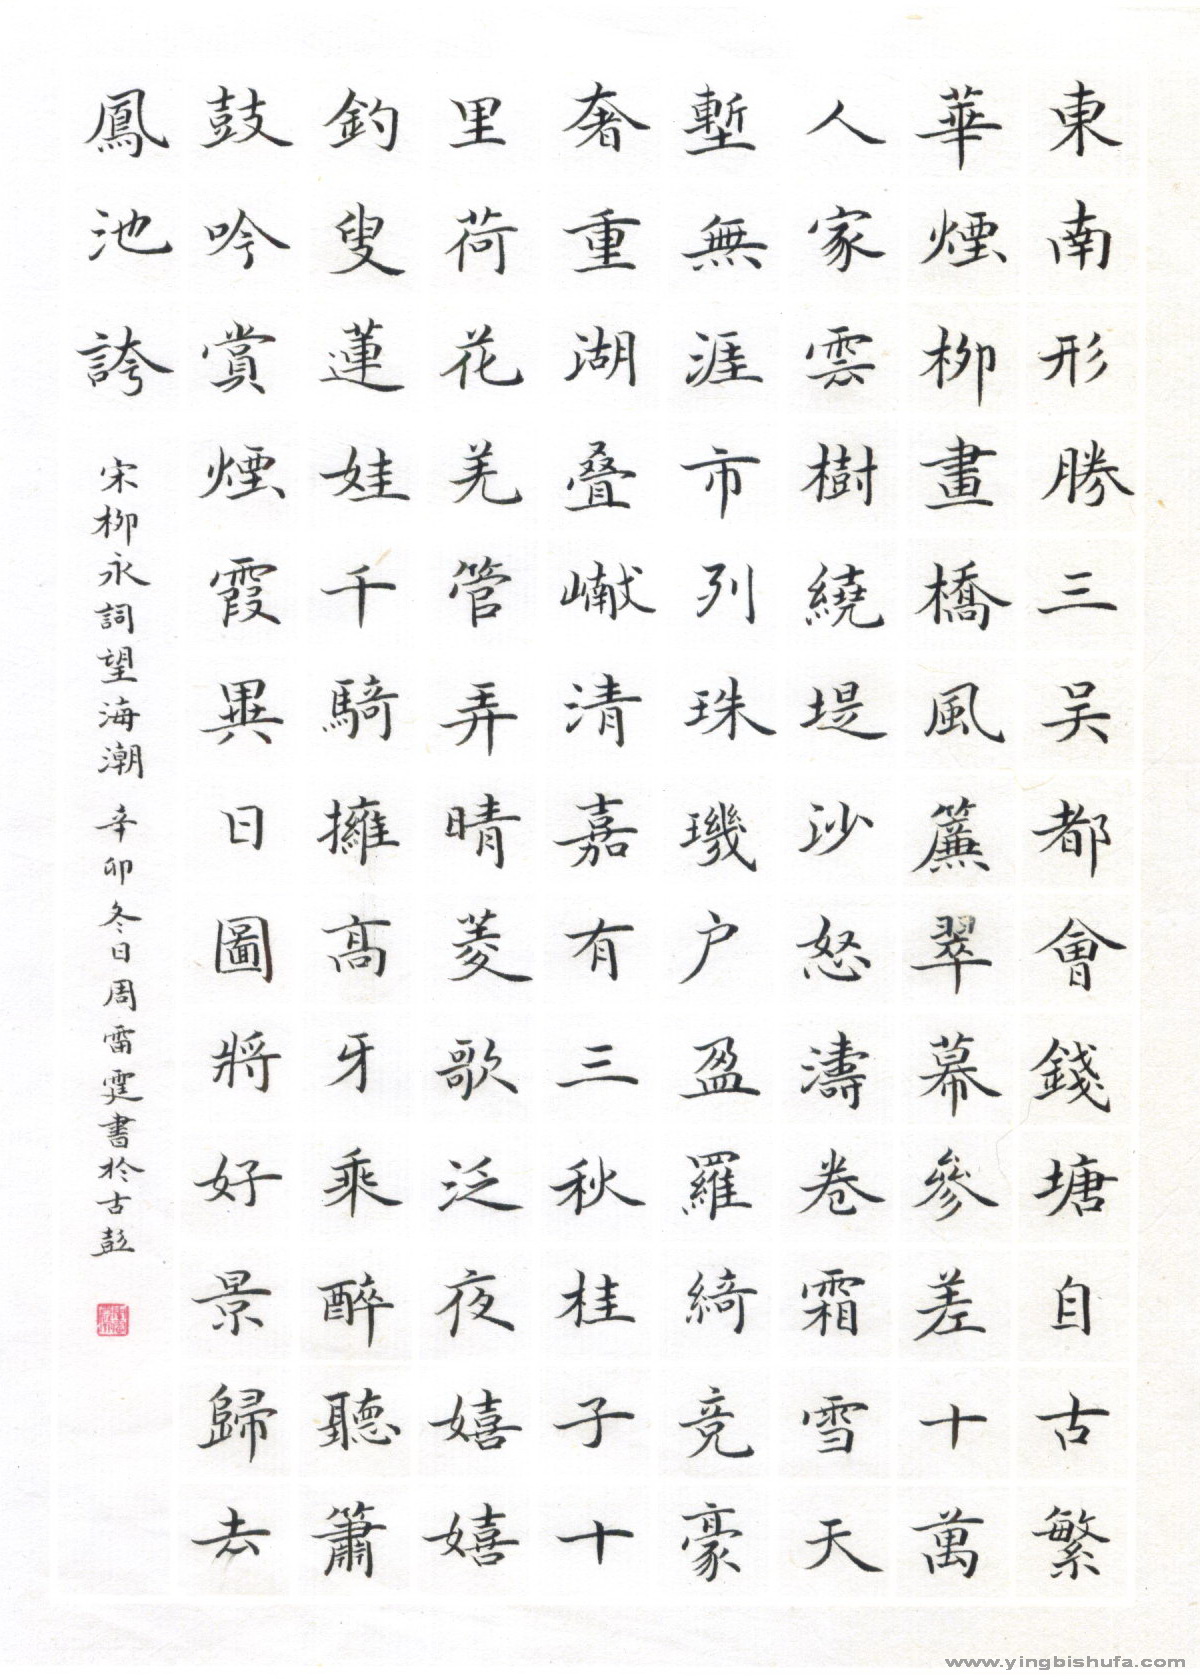 東南形勝三吴都會錢塘自古繁
華煙柳畫橋風簾翠幕參差十萬
人家雲樹繞堤沙怒濤卷霜雪天
塹無涯市列珠璣户盈羅綺竞豪
奢重湖叠巘清嘉有三秋桂子十
里荷花羌管弄晴菱歌泛夜嬉嬉
釣叟蓮娃千騎擁高牙乘醉聽簫
鼓吟賞煙霞異日圖將好景歸去
鳳池誇
宋柳永詞望海潮 辛卯冬日周雷霆書於古彭
www.yingbishufa.com